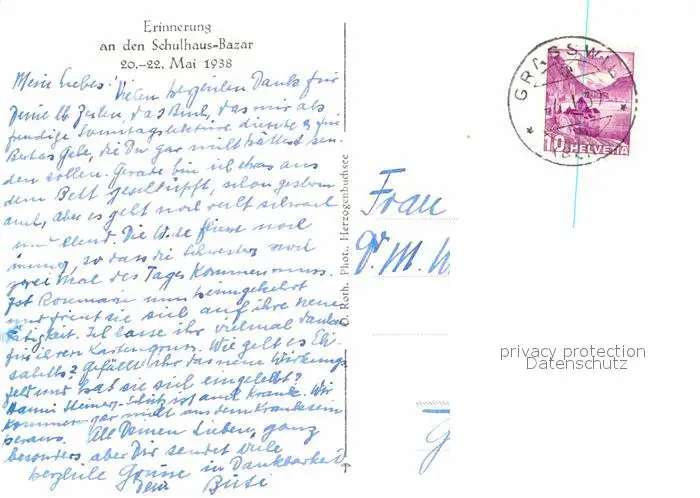 Erinnerung
an den Schulhaus=Bazar
20.—22. Mai 1938
Mein Liebes! Vielen herzlichen Dank für
Deine lb. Zeilen, das Buch, das mir als
freudige Sonntagslektüre diente & für
Gabe, die Du gar nicht hättest sen-
den sollen. Gerade bin ich etwas aus
dem Bett geschlüpft, schon gestern
auch, aber es geht noch recht schwach
und elend. Die fliesst noch
immer, so dass die Schwester noch
zwei mal des Tages kommen muss.
Ist Rosemarie nun heimgekehrt
und freut sie sich auf ihre neue
Tätigkeit. Ich lasse ihr vielmal danken
für ihren Kartengruss. Wie geht es Eli-
sabeth? Gefällt ihr das neue Wirkungs-
feld und hat sie sich eingelebt?
Hanni Steiner-Schütz ist auch krank. Wir
kommen gar nicht aus dem Kranksein
heraus. All Deinen Lieben, ganz
besonders aber Dir sendet viele
herzliche Grüsse in Dankbarkeit
Dein
O. Roth, Phot., Herzogenbuchsee
GRASSWIL
10 HELVETIA
Frau
Dr. M. W
privacy protection
Datenschutz
G